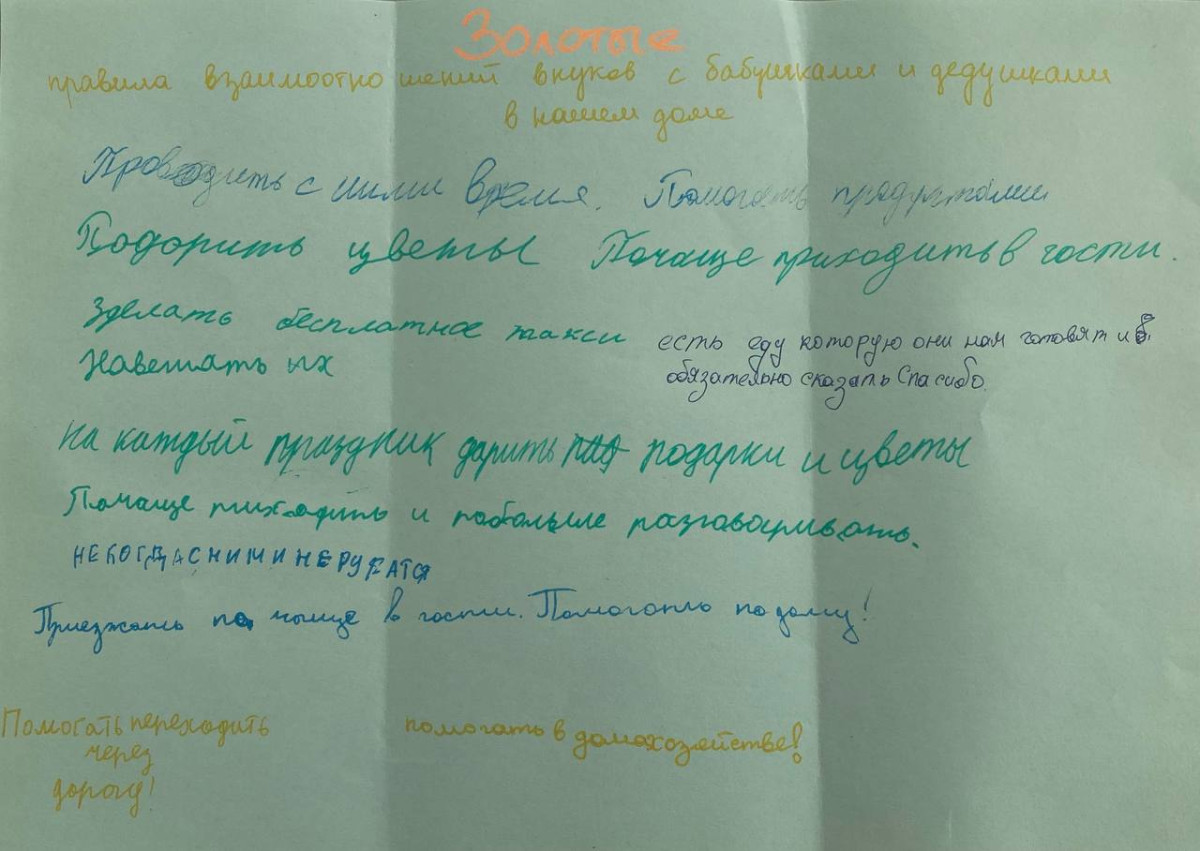 Золотые
правила взаимоотношений внуков с бабушками и дедушками
в нашем доме
Проводить с ними время. Помогать продуктами
Подорить цветы Почаще приходить в гости.
Зделать бесплатное такси
есть еду которую они нам готовят и
обязательно сказать Спасибо.
Навешать их
На каждый праздник дарить подарки и цветы
Почаще приходить и побольше разговаривать.
НЕКОГДА С НИМИ НЕ РУГАТСЯ
Приезжать по чаще в гости. Помогать по дому!
Помогать переходить
через
дорогу!
помогать в домохозяйстве!